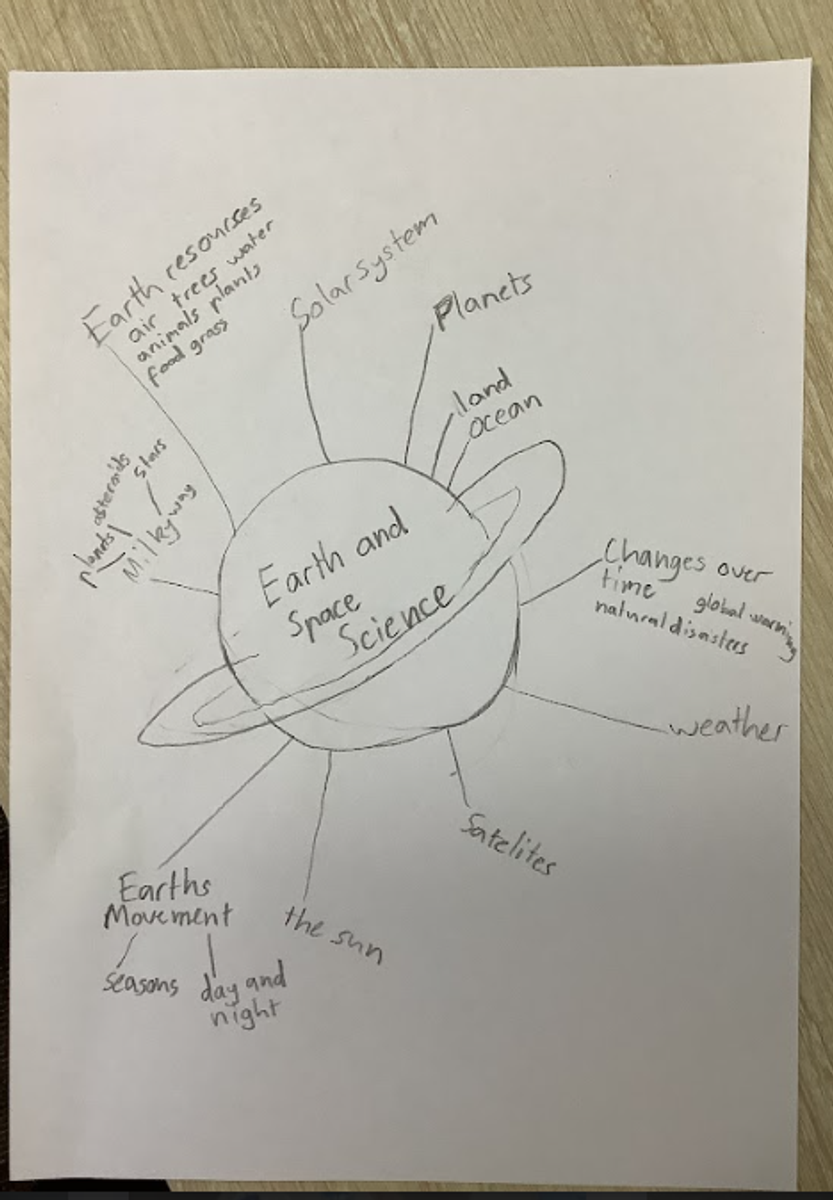 Earth resourses
air trees water
animals plants
food grass
Solar system
Planets
land
ocean
planets
asteroids
stars
Milky way
Earth and
Space
Science
Changes over
time
global warming
natural disasters
weather
Satelites
the sun
Earths
Movement
seasons
day and
night